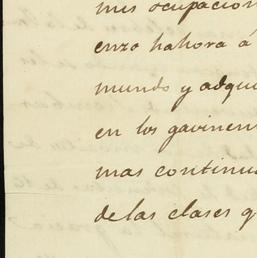 mis ocupacion
enzo hahora á
mundo y adqui
en los gavinen
mas continu
de las clases q